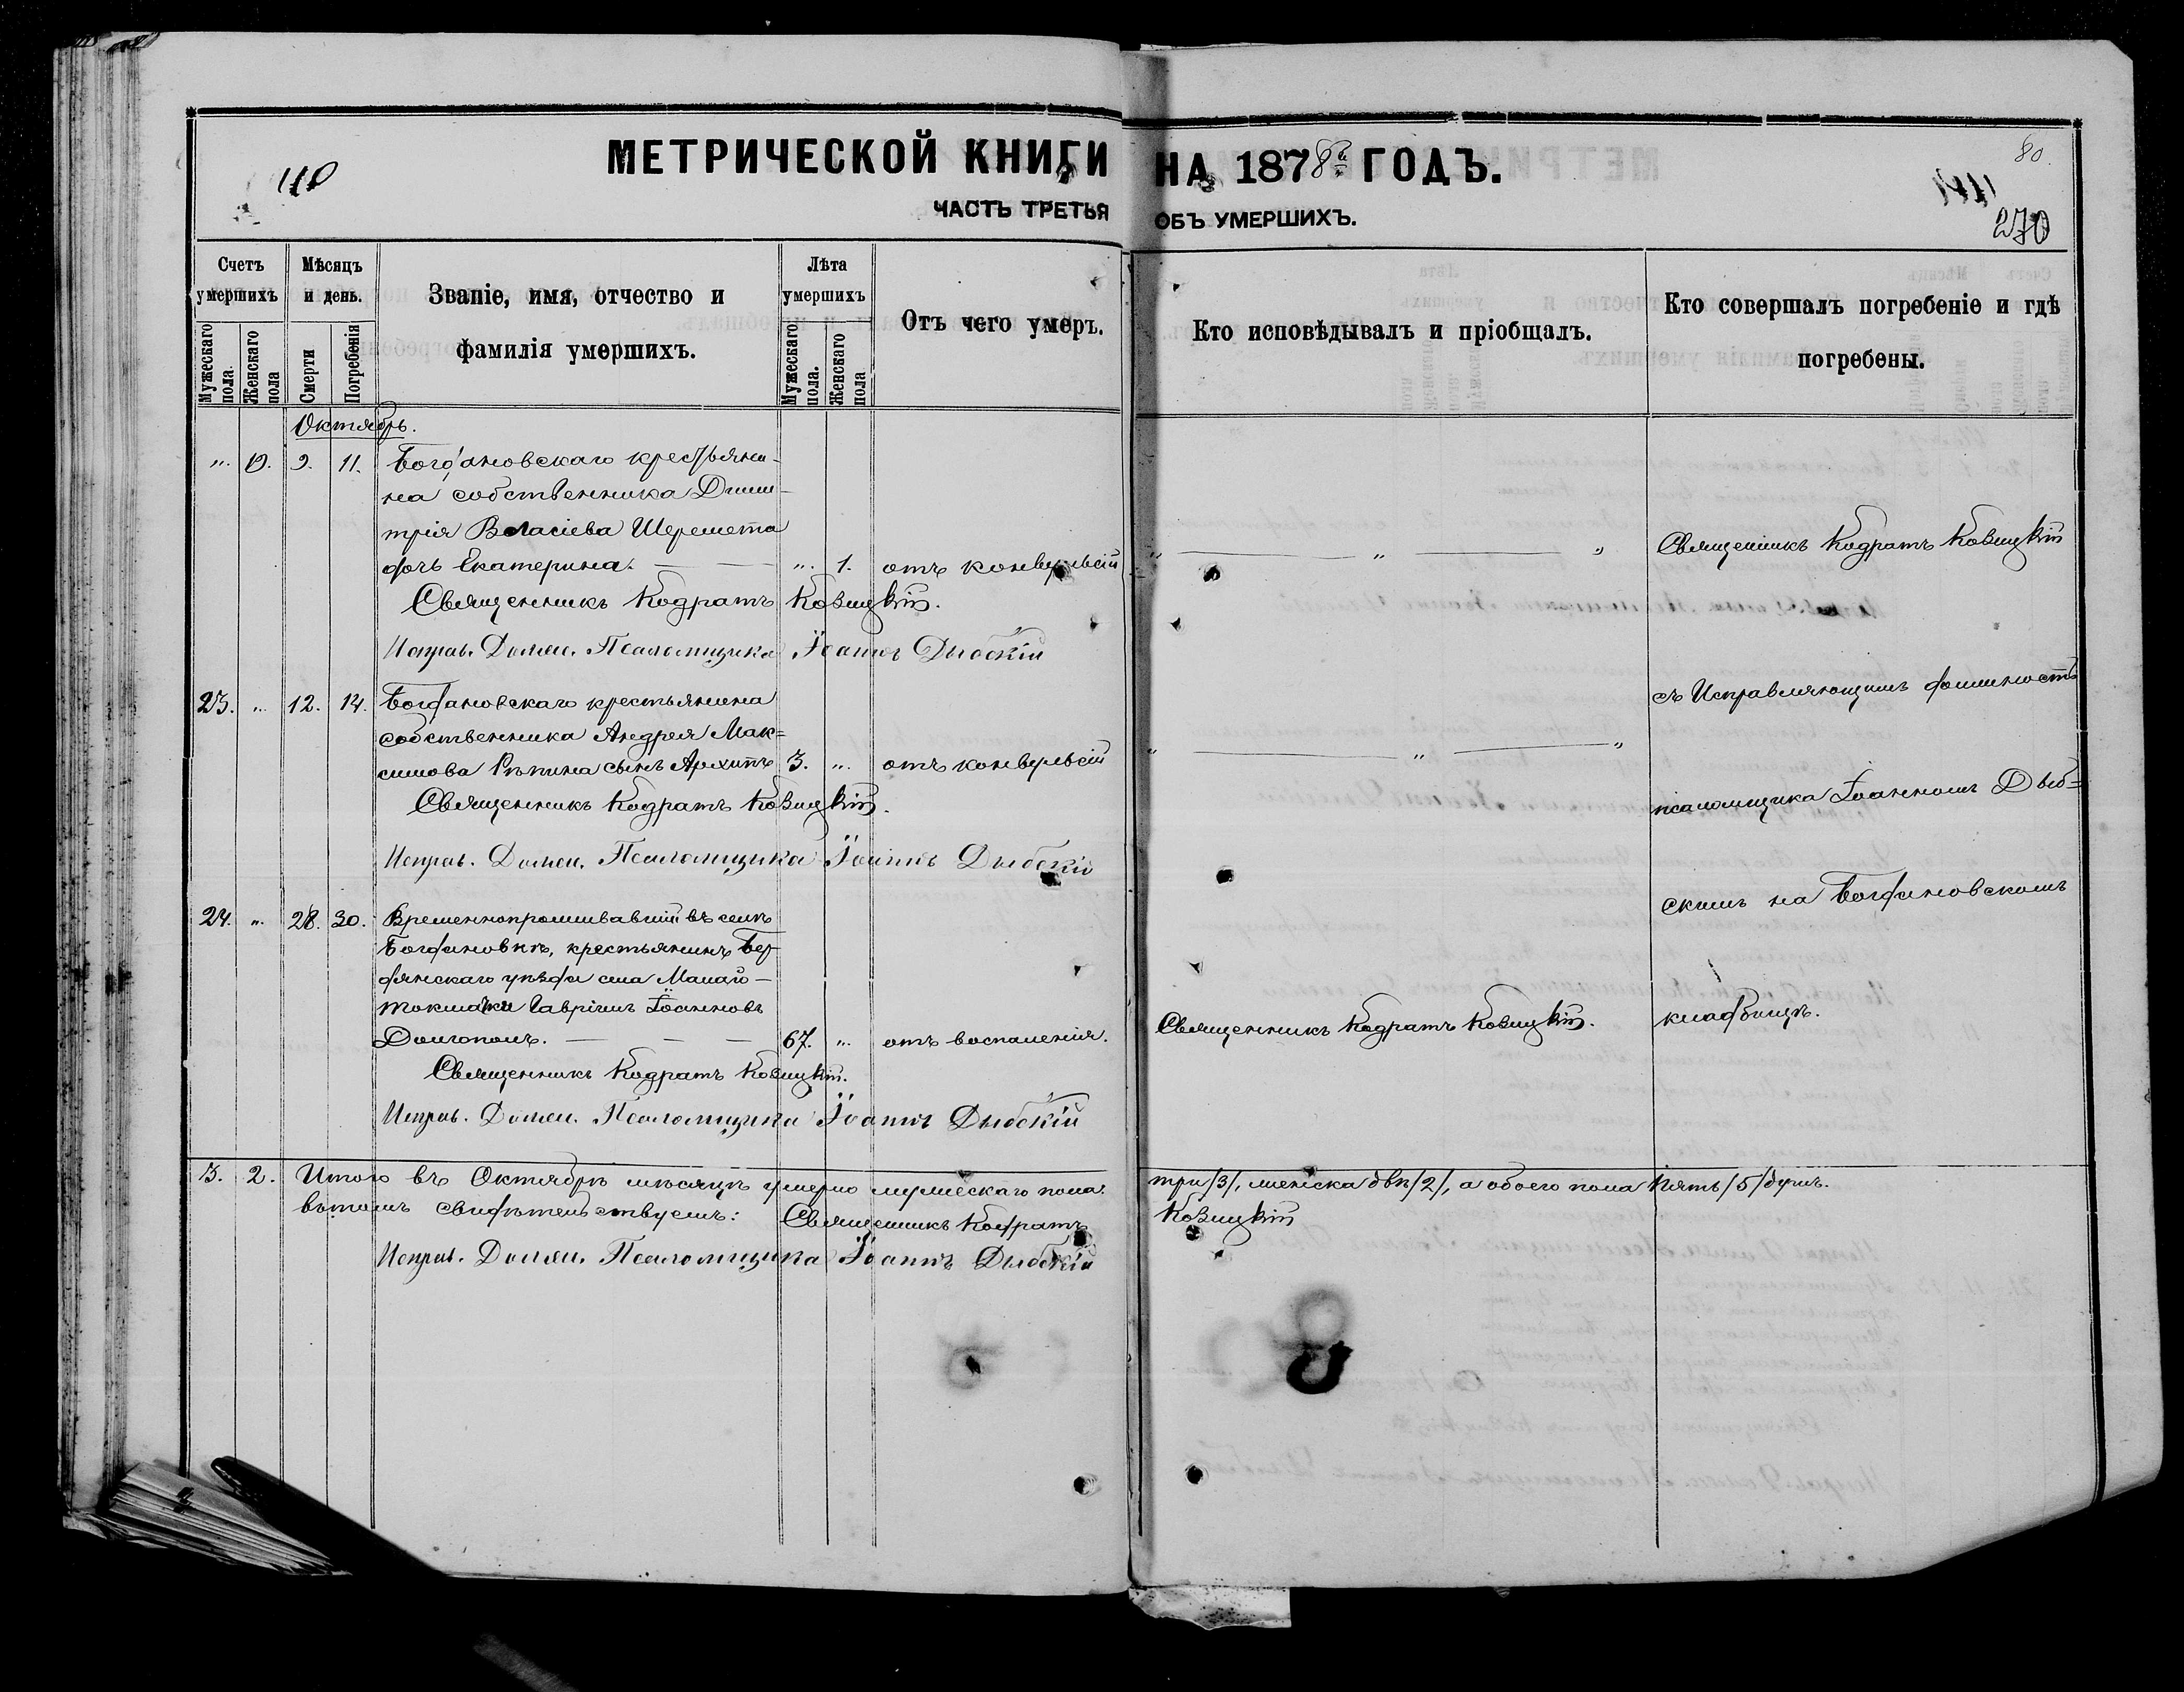 МЕТРИЧЕСКОЙ КНИГИ НА 1878й ГОДЪ.
80.
270
ЧАСТЬ ТРЕТЬЯ ОБЪ УМЕРШИХЪ.
Счетъ умершихъ
Мѣсяцъ и день.
Званіе, имя, отчество и фамилія умершихъ.
Лѣта умершихъ
Отъ чего умеръ.
Кто исповѣдывалъ и пріобщалъ.
Кто совершалъ погребеніе и гдѣ погребены.
Мужескаго пола.
Женскаго пола
Смерти
Погребенія
Мужескаго пола.
Женскаго пола
Октябрь.
„ 9. 11. Богдановскаго крестьяни-
на собственника Дими-
трія Власіева Шеремета
дочь Екатерина. — — „ 1. отъ конвульсій
„ — „ — „
Священникъ Кодратъ Ковицкій
Священникъ Кодратъ Ковицкій.
Исправ. Должн. Псаломщика Іоаннъ Дыбскій
23. „ 12. 14. Богдановскаго крестьянина
собственника Андрея Мак=
симова Рѣпина сынъ Архипъ 3. „ отъ конвульсій
„ — „ — „
съ Исправляющимъ должность
Священникъ Кодратъ Ковицкій.
псаломщика Іоанномъ Дыб=
Исправ. Должн. Псаломщика Іоаннъ Дыбскій
скимъ на Богдановскомъ
24. „ 28. 30. Временнопроживавшій въ селѣ
Богдановкѣ, крестьянинъ Бер-
дянскаго уѣзда села Малаго-
токмака Гавріилъ Іоанновъ
Долгополъ. — — — 67. „ отъ воспаленія.
Священникъ Кодратъ Ковицкій.
кладбищѣ.
Священникъ Кодратъ Ковицкій.
Исправ. Должн. Псаломщика Іоаннъ Дыбскій
3. 2. Итого въ Октябрѣ мѣсяцѣ умерло мужескаго пола три /3/, женска двѣ /2/, а обоего пола Пять /5/ душъ.
въ томъ свидѣтельствуемъ: Священникъ Кодратъ Ковицкій
Исправ. Должн. Псаломщика Іоаннъ Дыбскій